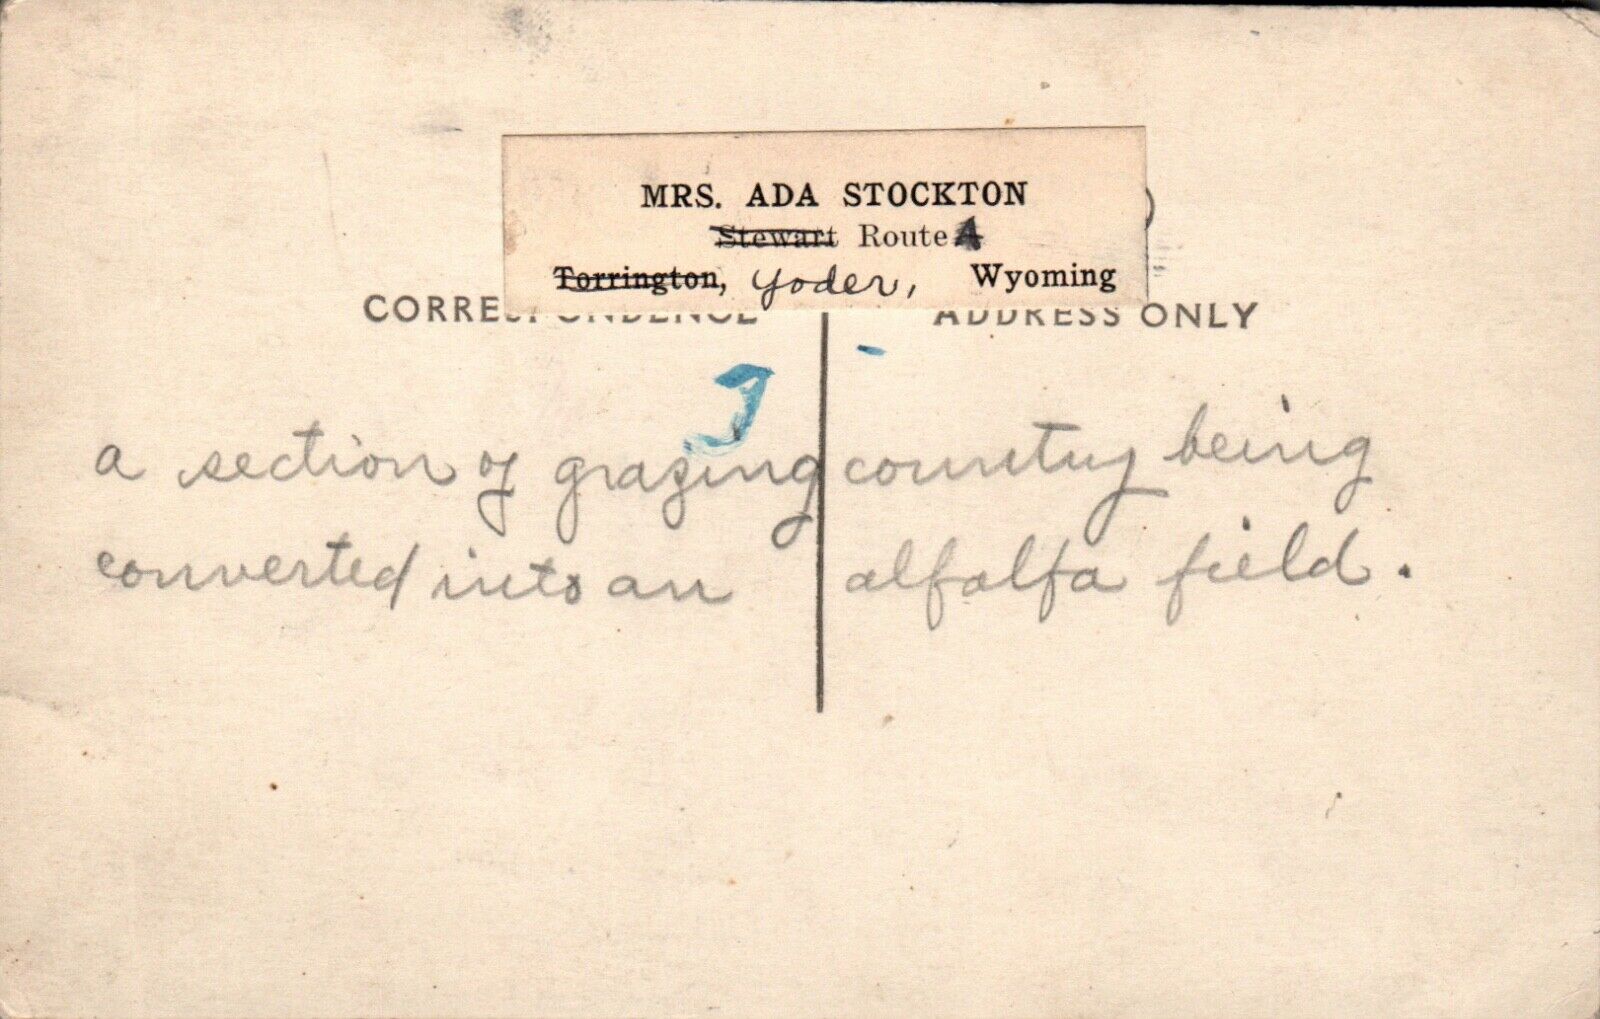 MRS. ADA STOCKTON
Stewart Route A
Torrington, Yoder, Wyoming
CORRESPONDENCE ADDRESS ONLY
J
a section of grazing country being
converted into an alfalfa field.